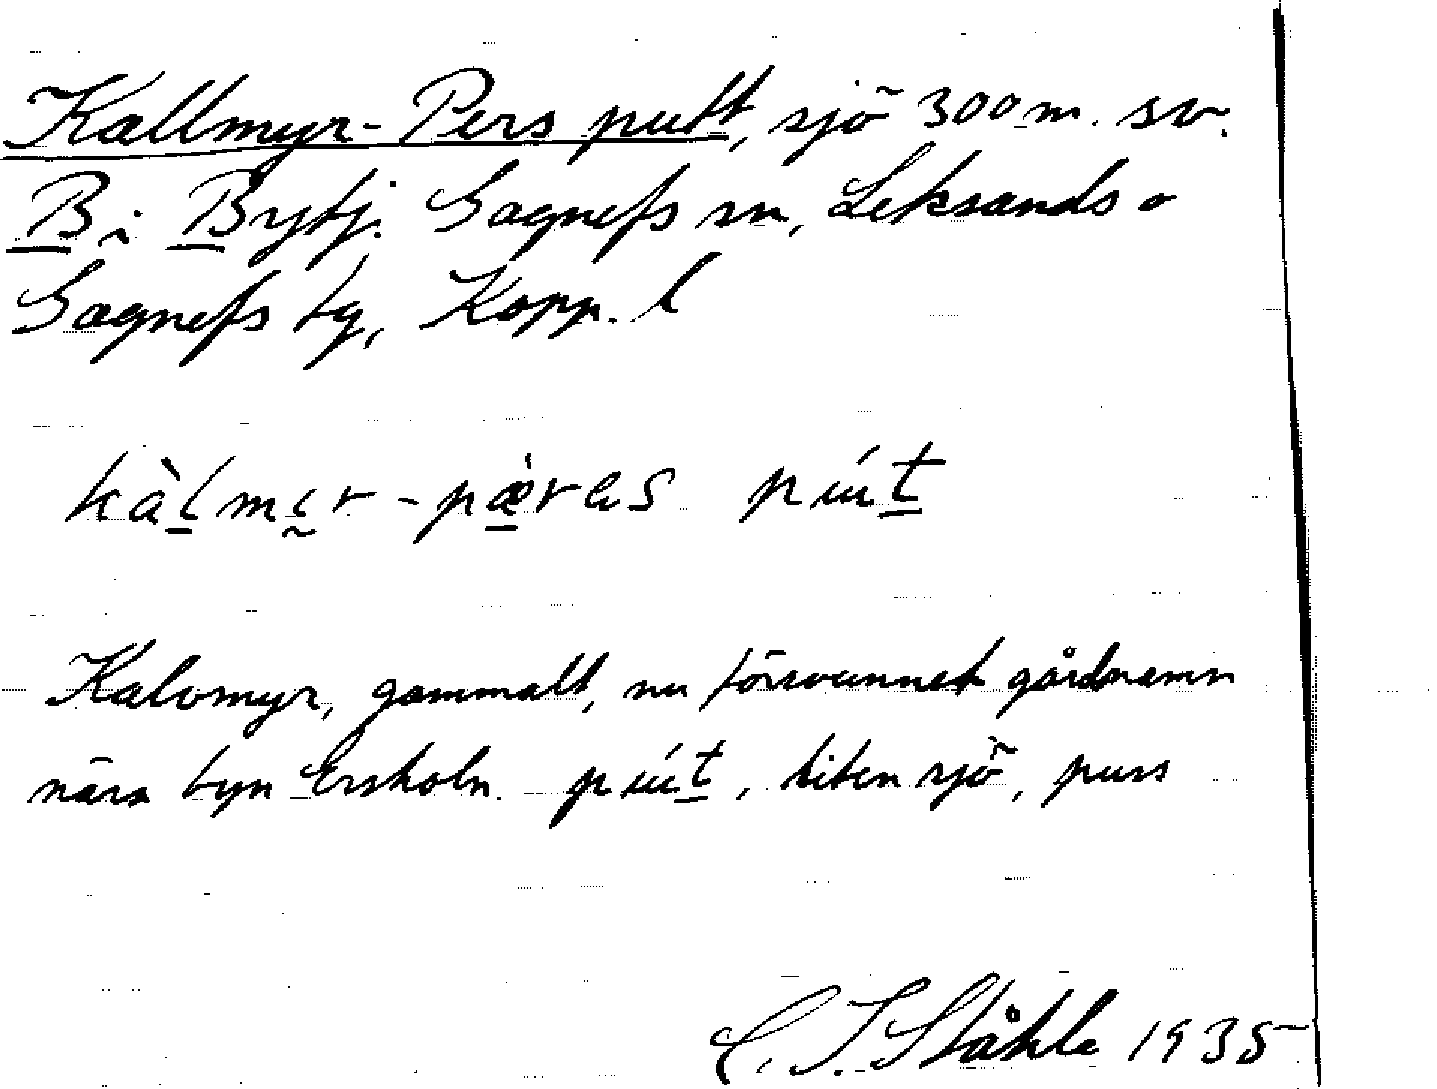 Kallmyr-Pers putt, sjö 300 m. sv.
B i Bystj. Gagnefs sn, Leksands o
Gagnefs tg, Kopp. l
kàl̠mɛ̰r-pæ̀ras pút̠
Kalvmyr, gammalt, nu försvunnet gårdnamn
nära byn Ersholn. pút̠, liten sjö, puss
C. I. Ståhle 1935